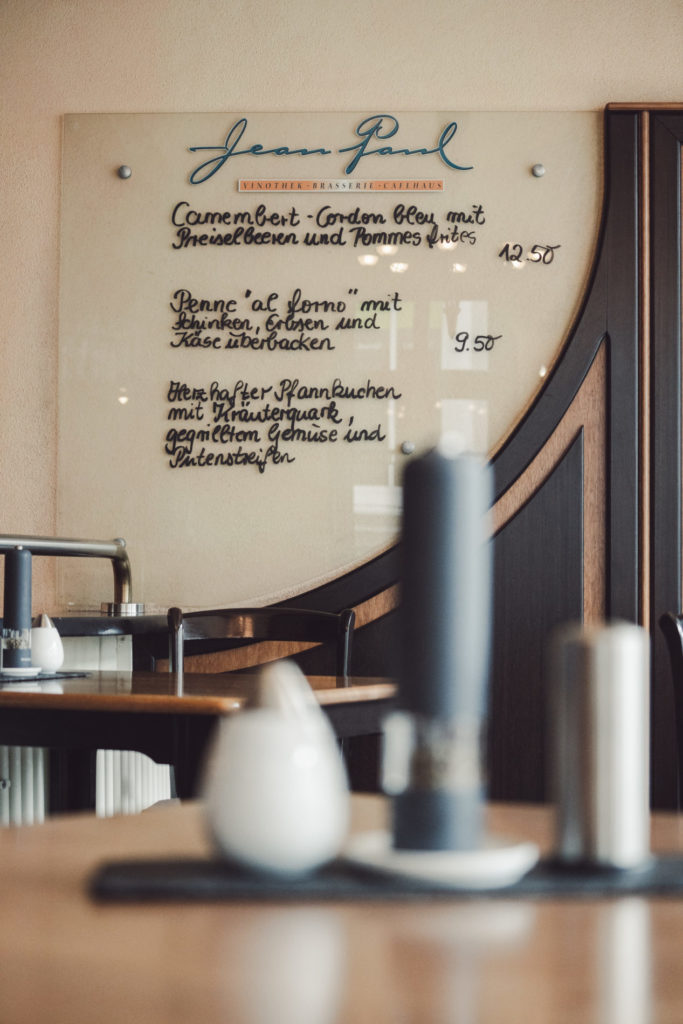 Jean Paul
VINOTHEK · BRASSERIE · CAFÉHAUS
Camembert - Cordon bleu mit
Preiselbeeren und Pommes frites
12.50
Penne "al forno" mit
Schinken, Erbsen und
Käse überbacken
9.50
Herzhafter Pfannkuchen
mit Kräuterquark,
gegrilltem Gemüse und
Putenstreifen